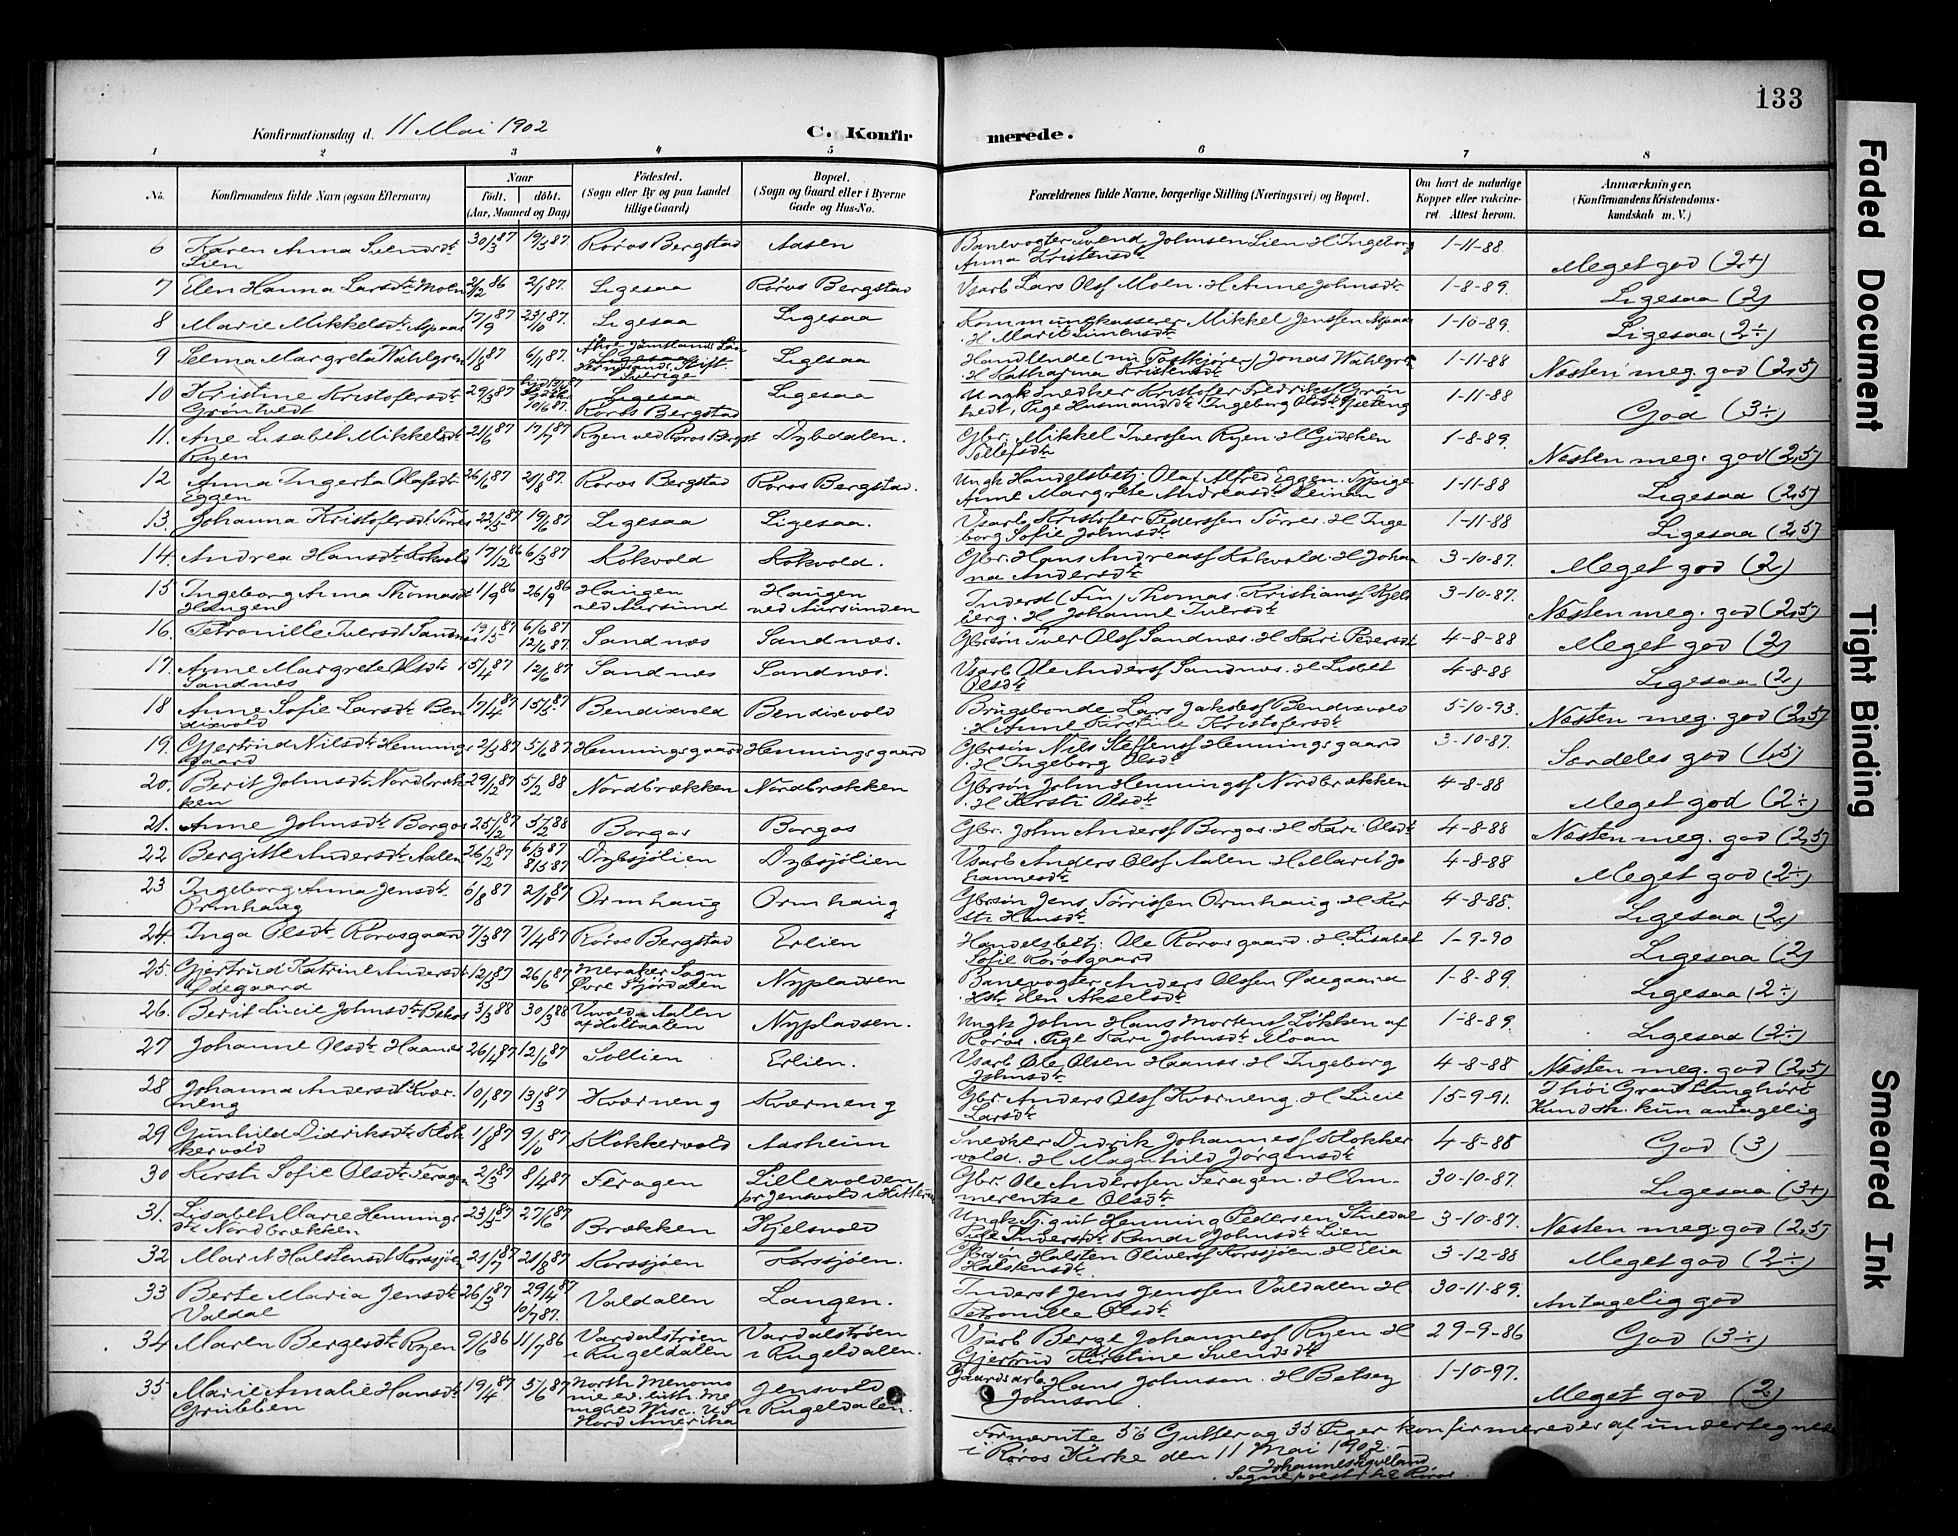 133
Konfirmationsdag d. 11 Mai 1902
C. Konfirmerede.
1 2 3 4 5 6 7 8
No.
Konfirmandens fulde Navn (ogsaa Efternavn)
Naar
födt. döbt.
(Aar, Maaned og Dag)
Födested.
(Sogn eller By og paa Landet
tillige Gaard)
Bopæl.
(Sogn og Gaard eller i Byerne
Gade og Hus-No.
Forældrenes fulde Navne, borgerlige Stilling (Næringsvei) og Bopæl.
Om havt de naturlige
Kopper eller vakcine-
ret. Attest herom.
Anmærkninger.
(Konfirmandens Kristendoms-
kundskab m. V.)
6 Karen Anna Svendsdt. Lien 30/3 87 19/5 87 Røros Bergstad Aasen Banevogter Svend Johnsen Lien H Ingeborg Anna Kristensdt. 1-11-88 Meget god (2+)
7 Elen Hanna Larsdt. Moen 2/12 86 2/1 87. Ligesaa Røros Bergstad Varb Lars Olsf Moen. H Anne Johnsdt. 1-8-89. Ligesaa (2)
8 Marie Mikkelsdt. Aspaas 17/9 87 23/10 87. Ligesaa Ligesaa Kommunekasserer Mikkel Jenssen Aspaas H Marit Simensdt. 1-10-89. Ligesaa (2÷)
9 Selma Margreta Wahlgren 87 87. Sverige Ligesaa Handlende (nu Postkjører) Jonas Wahlgren H Katharina Kristensdt. 1-11-88 Næsten meg. god (2,5)
10 Kristine Kristofersdt. Grøntvedt 29/3 87 10/6 87. Ligesaa Røros Bergstad Ligesaa Ungk Snedker Kristofer Fredriksf Grøntvedt, Pige Husmandsdt. Ingeborg Olsdt. 1-11-88 God (3÷)
11. Ane Lisabet Mikkelsdt. Ryen 21/6 87 17/7 87 Ryen ved Røros Bergst Dybdalen. Gbr. Mikkel Iverssen Ryen H Gidsken Tollefsdt. 1-8-89. Næsten meg. god (2,5)
12 Anna Ingerta Olafsdt. Eggen 26/6 87 21/8 87. Røros Bergstad Røros Bergstad. Ungk Handelsbetj. Olaf Alfred Eggen. Anne Margrete Andreasdt. 1-11-88 Ligesaa (2,5)
13. Johanna Kristofersdt. Tørres 22/5 87 19/6 87 Ligesaa Ligesaa. Varb Kristofer Pederssen Tørres. H Ingeborg Sofie Johnsdt. 1-11-88 Ligesaa (2,5)
14. Andrea Hansdt. Kokvold 17/12 86 6/3 87 Kokvold Kokvold. Gbr. Hans Andreasf Kokvold. H Johanna Andersdt. 3-10-87. Meget god (2)
15 Ingeborg Anna Thomasdt. Haugen 1/9 86 26/9 86 Haugen ved Aursund Haugen ved Aursunden Inderst (Fin) Thomas Kristiansf Kjelsberg. H Johanne Iversdt. 3-10-87. Næsten meg. god (2,5)
16. Petronille Iversdt. Sandnæs 19/5 87 6/6 87 12/6 87. Sandnæs Sandnæs. Gbrsøn Iver Olsf Sandnæs. H Kari Pedersdt. 4-8-88 Meget god (2)
17. Anne Margrete Olsdt. Sandnæs 15/4 87 12/6 87 Sandnæs Sandnæs. Varb Ole Andersf Sandnæs. H Lisbet Olsdt. 4-8-88 Ligesaa (2)
18 Anne Sofie Larsdt. Bendixvold 17/4 87 15/5 87 Bendixvold Bendixvold Brugsbonde Lars Jakobsf Bendixvold H Anne Kirstine Kristofersdt. 5-10-93. Næsten meg. god (2,5)
19. Gjertrud Nilsdt. Henningsgaard 2/5 87 5/6 87 Henningsgaard Henningsgaard Gbrsøn Nils Steffensf Henningsgaard H Ingeborg Olsdt. 3-10-87. Særdeles god (1,5)
20. Berit Johnsdt. Nordbrækken 29/12 87 5/2 88 Nordbrækken Nordbrækken Gbrsøn John Henningsf Nordbrækken H Kirsti Olsdt. 4-8-88 Meget god (2÷)
21. Anne Johnsdt. Borgos 25/12 87 5/2 88 Borgos Borgos Gbr. John Andersf Borgos. H Kari Olsdt. 4-8-88 Næsten meg. god (2,5)
22 Bergitte Andersdt. Aalen 26/2 87 6/3 87 8/5 87 Dybsjølien Dybsjølien Varb Anders Olsf Aalen. H Marit Johannesdt. 4-8-88 Meget god (2÷)
23 Ingeborg Anna Jensdt. Ormhaug 6/8 87 87 Ormhaug Ormhaug Gbrsøn Jens Tørrissen Ormhaug. H Kirsti Hansdt. 4-8-88. Ligesaa (2)
24. Inga Olsdt. Rørosgaard 7/3 87 7/4 87 Røros Bergstad Erlien Handelsbetj. Ole Rørosgaard. H. Lisabet Sofie Rørosgaard 1-9-90 Ligesaa (2)
25. Gjertrud Katrine Andersdt. Ødegaard 12/3 87 26/6 87 Meraker Sogn Øvre Stjørdalen Nypladsen Banevogter Anders Olssen Ødegaard Elen Akselsdt. 1-8-89. Ligesaa (2÷)
26. Berit Lucie Johnsdt. 3/3 88 30/3 88 Aalen af Holtaalen Nypladsen. Ungk John Hans Mortensf Løkken af Røros. Pige Kari Johnsdt. Moan 1-8-89. Ligesaa (2÷)
27 Johanne Olsdt. Haanes 26/4 87 12/6 87 Sollien Erlien. Varb Ole Olsen Haanes H Ingeborg Johnsdt. 4-8-88 Næsten meg. god (2,5)
28 Johanna Andersdt. Kværneng 10/1 87 13/3 87 Kværneng Kværneng Gbr Anders Olsf Kværneng. H Lucie Larsdt. 15-9-91. I høi Grad tunghørt Kundsk. kun antagelig
29 Gunhild Didriksdt. Klokkervold 1/8 87 9/10 87 Klokkervold Aasheim Snedker Didrik Johannesf Klokkervold. H Magnhild Jørgensdt. 4-8-88 God (3)
30 Kirsti Sofie Olsdt. Feragen 2/3 87 8/4 87 Feragen Lillevolden pr Jensvold i Hitterdalen Gbr. Ole Anderssen Feragen. H Emmerentse Olsdt. 30-10-87. Ligesaa (3+)
31. Lisabet Marie Henningsdt. Nordbrækken 23/5 87 27/6 87 Brækken Kjelsvold Ungk Henning Pedersen Stuedal Pige Randi Johnsdt. Lien 3-10-87. Næsten meg. god (2,5)
32 Marit Halstensdt. Korssjøen 21/7 87 21/8 87 Korssjøen Korssjøen. Gbrsøn Halsten Oliversf Korssjøen. H Elia Halstensdt. 3-12-88 Meget god (2÷)
33 Berte Maria Jensdt. Valdal 26/3 87 29/4 87 10/7 87. Valdalen Langen. Inderst Jens Jenssen Valdalen H Petronille Olsdt. 30-11-89. Antagelig god
34 Maren Bergesdt. Ryen 9/6 86 11/7 86 Vardalstrøen i Rugeldalen Vardalstrøen i Rugeldalen. Varb Berge Johannesf Ryen H Gjertrud Kirstine Svendsdt. 29-9-86 God (3÷)
35 Marie Amalie Hansdt. Grubben 19/4 87 5/6 87 North Menomonie ev. luth. Menighed Wisc. U.S Nord Amerika Jensvold i Rugeldalen. Gaardsarb. Hans Johnson. H Betsey Johnson. 1-10-97. Meget god (2)
Fornævnte 56 Gutter og 35 Piger konfirmeredes af undertegnede
i Røros Kirke den 11 Mai 1902.
Sogneprest til Røros.
Faded Document
Tight Binding
Smeared Ink